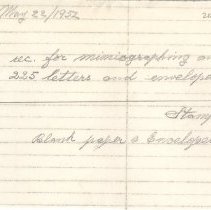 May 22/1952
rec. for mimiographing an
225 letters and envelope
Stamp
Blank paper & Envelope